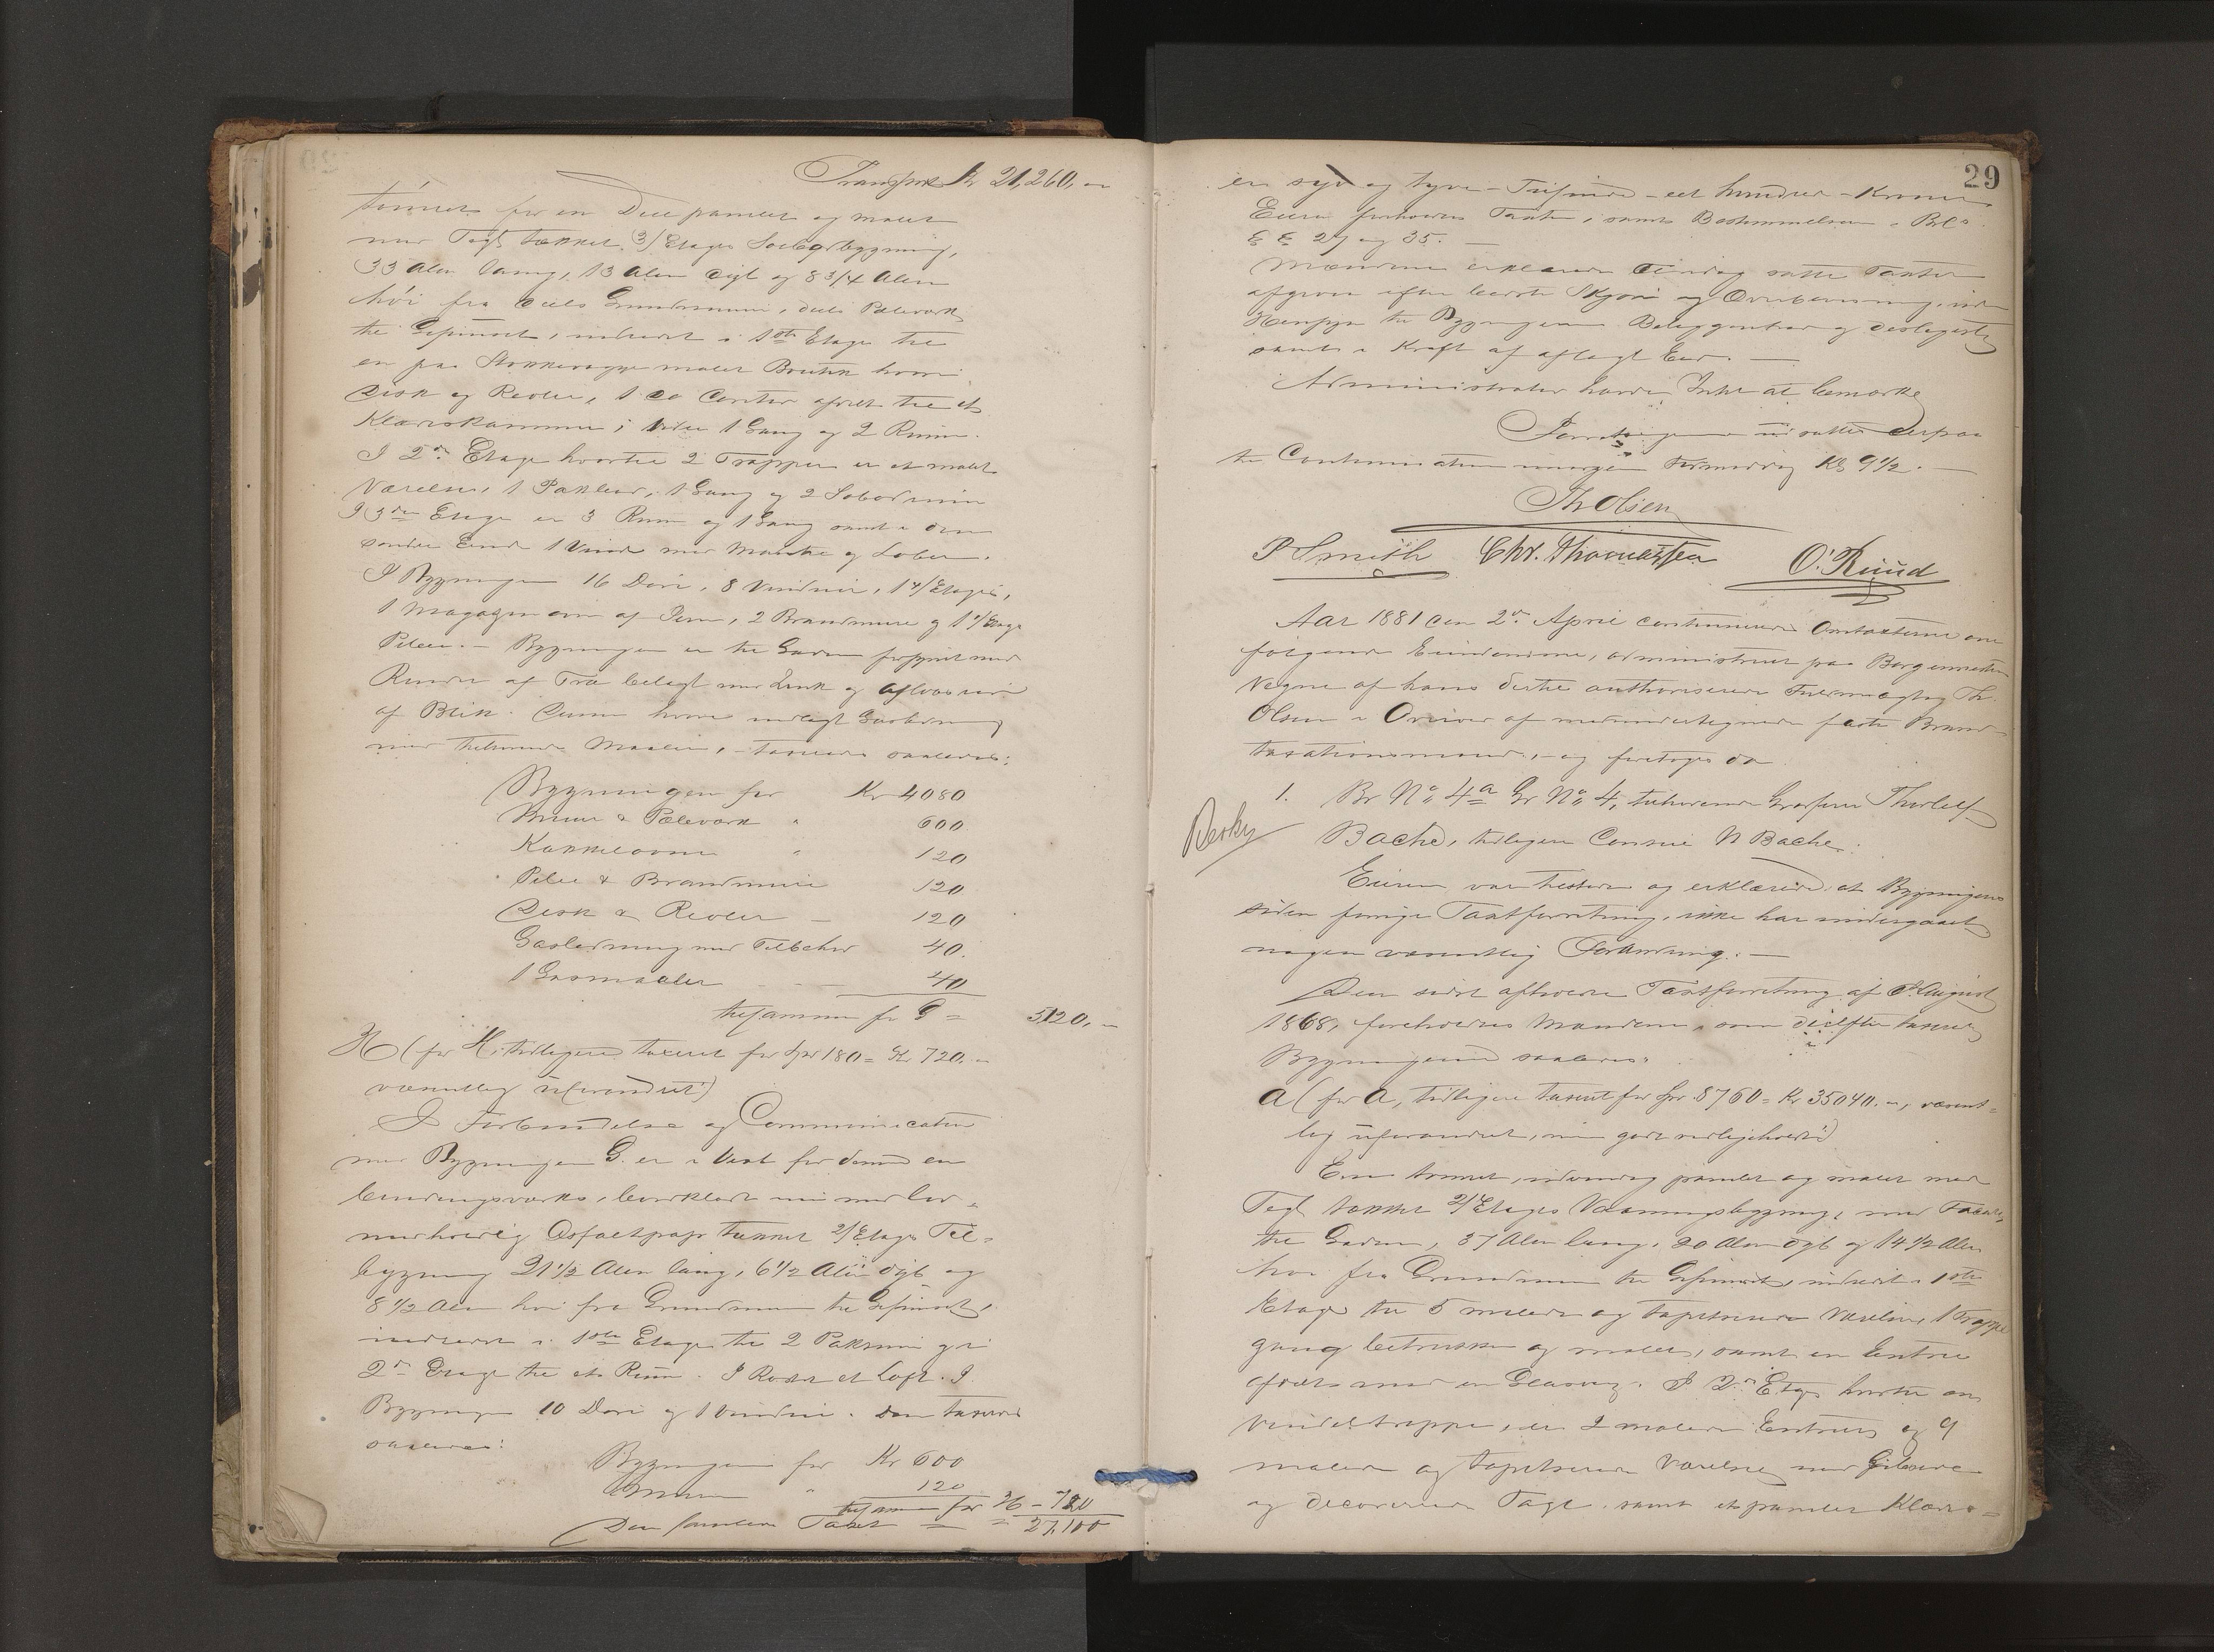 Transport Kr 21,260,-
tømret for en Deel panelet og malet
med Tagt tækket 3/Etages Søebodbygning,
33 Alen lang, 13 Alen dyb og 8 3/4 Alen
høi fra deels Grundmuur, deels Pæleværk
til Gesimset, indredet i 1ste Etage til
en paa Stokkevægge malet Boutik hvori
Disk og Reoler, 1 do Contor afdelt til et
Klædeskammer; videre 1 Gang og 2 Rum.
I 2den Etage hvortil 2 Trapper er et malet
Værelse, 1 Pakbod, 1 Gang og 2 Søbodrum
I 3die Etage er 3 Rum og 1 Gang samt i den
søndre Ende 1 Vinde med
I Bygningen 16 Døre, 8 Vinduer, 1 4/Etages,
1 Magazinovn af Jern, 2 Brandmure og 1 4/Etage
Peleer. - Bygningen er til Gaden forsynet med
Render af Træ belagt med Zink og
af Blik. Denne hvori indlagt Gasledning
med tilhørende Maaler, - taxeredes saaledes:
Bygningen for Kr 4080
Muur & Pæleværk " 600
Kakkelovne " 120
Peler & Brandmure 120
Disk & Reoler - 120
Gasledning med Tilbehør 40.
1 Gasmaaler - - 40
tilsammen for G = 5120,-
H (for H. tidligere taxeret for Spd 180 = Kr 720.-
væsentlig uforandret)
I Forbindelse og Communication
med Bygningen G. er i Vest for denne en
bindingsværks, bordklædt med
Asfaltpap tækket 2/Etages Til-
bygning 21 1/2 Alen lang, 6 1/2 Alen dyb og
8 1/2 Alen høi fra Grundmuur til Gesimset,
indredet i 1ste Etage til 2 Pakrum og i
2den Etage til et Rum. I Røstet et Loft. I
Bygningen 10 Døre og 1 Vindue. Den taxeredes
saaledes:
Bygningen for Kr 600
Muren " 120
tilsammen for H - 720
Den samlede Taxt = = 27,100
29
er syv og tyve - Tusinde - eet hundrede - Kroner
Eieren forholdtes Taxten, samt Bestemmelsen i Brl
§ § 27 og 35. -
Mændene erklærede at idag satte Taxter
afgivne efter bedste Skjøn og Overbevisning, med
Hensyn til Bygningernes Beliggenhed og desligeste
samt i Kraft af aflagt Eed. -
Administrator havde Intet at bemærke
Forretningen udsattes derpaa
til Continuation imorgen Formiddag Kl 9 1/2. -
Th Olsen
P Smith Chr. Thomassen O. Ruud
Aar 1881 den 2den April continueredes Omtaxterne over
følgende Eiendomme, administreret paa Borgermesterens
Vegne af hans dertil authoriserede Fuldmægtig Th.
Olsen i Overvær af medundertegnede faste Brand-
taxationsmænd, - og foretoges da
1. Br No 4a Gr No 4, tilhørende Grosserer Thorleif
Resky
Bache, tidligere Consul N Bache.
Eieren var tilstede og erklærede at Bygningerne
siden forrige Taxtforretning, ikke har undergaaet
nogen væsentlig Forandring. -
Den sidst afholdte Taxtforretning af August
1868, foreholdtes Mændene, som derefter taxerede
Bygningerne saaledes:
A (for A, tidligere taxeret for Spd 8760 = Kr 35040.-, væsent=
lig uforandret, men godt vedligeholdt)
En tømret, udvendig panelet og malet med
Tagt tækket 2/Etages Vaaningsbygning, med Facade
til Gaden, 37 Alen lang, 20 Alen dyb og 14 1/2 Alen
høi fra Grundmuur til Gesimset, indredet i 1ste
Etage til 5 malede og tapetserede Værelser, 1 Trappe
gang betrukken og malet, samt en Entree
afdelt med en Glasvæg. I 2den Etage hvortil en
Vindeltrappe, er 2 malede Entreer og 9
malede og tapetserede Værelser med Gibsede
og decorerede Tage, samt et panelet Klæde=